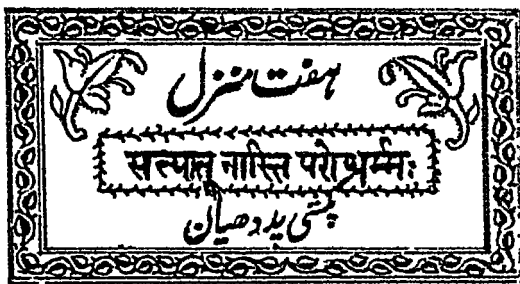 ہفت منزل
सत्यात् नास्ति परो धर्म्मः
پستی پد ودھیان